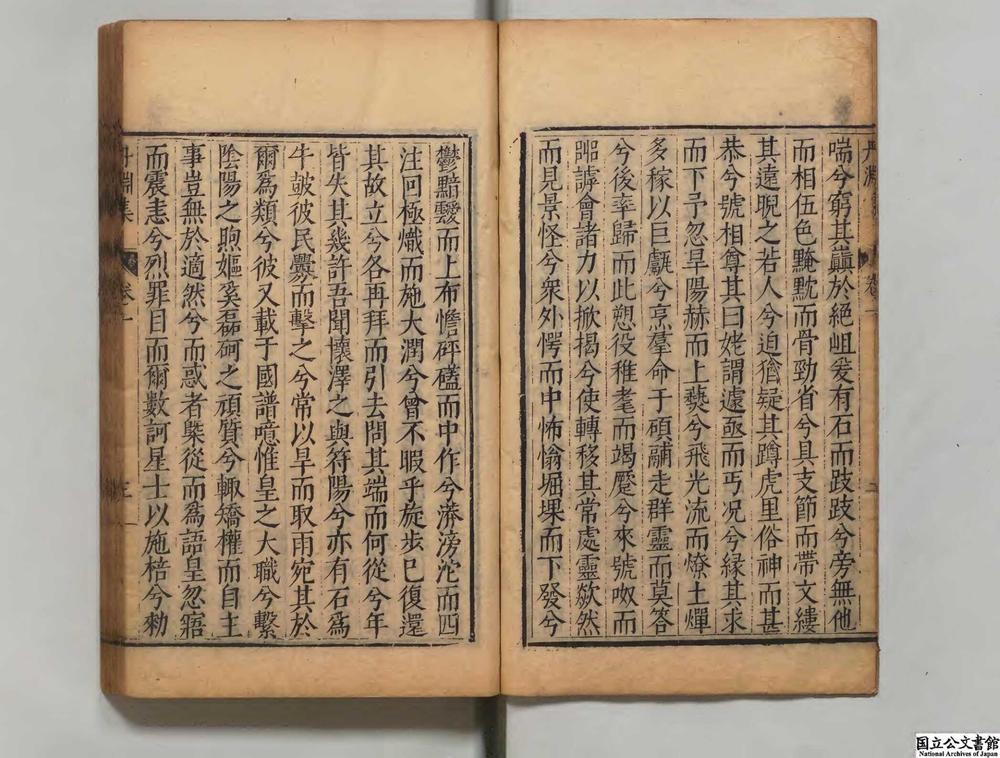 喘兮窮其巔於絕岨爰有石而跂跂兮旁無他
而相伍色黤黕而骨勁省兮具支節而帶文縷
其遠晲之若人兮迫猶疑其蹲虎里俗神而甚
恭兮號相尊其曰姥謂遠亟而丐况兮緣其求
而下予忽旱陽赫而上爕兮飛光流而燎土燀
多稼以巨甗兮烹羣命于碩鬴走群靈而莫答
兮後率歸而此愬役稚耄而竭蹷兮來號呶而
謼會諸力以掀揭兮使轉移其常處靈欻然
而見景怪兮衆外愕而中怖惝堀堁而下發兮
鬱黯靉而上布憺砰礚而中作兮濟滂沱而四
注回極熾而施大潤兮曾不暇乎旋步已復還
其故立兮各再拜而引去問其端而何從兮年
皆失其幾許吾聞懷澤之與符陽兮亦有石為
牛皷彼民釁而擊之兮常以旱而取雨宛其於
爾為類兮彼又載于國譜噫惟皇之大職兮繫
隂陽之煦嫗奚磊砢之頑質兮輙矯權而自主
事豈無於適然兮而惑者槩從而為語皇忽寤
而震恚兮烈罪目而爾數訶星士以施棓兮勑
丹淵
卷一
丹淵集
卷一
三
国立公文書館
National Archives of Japan